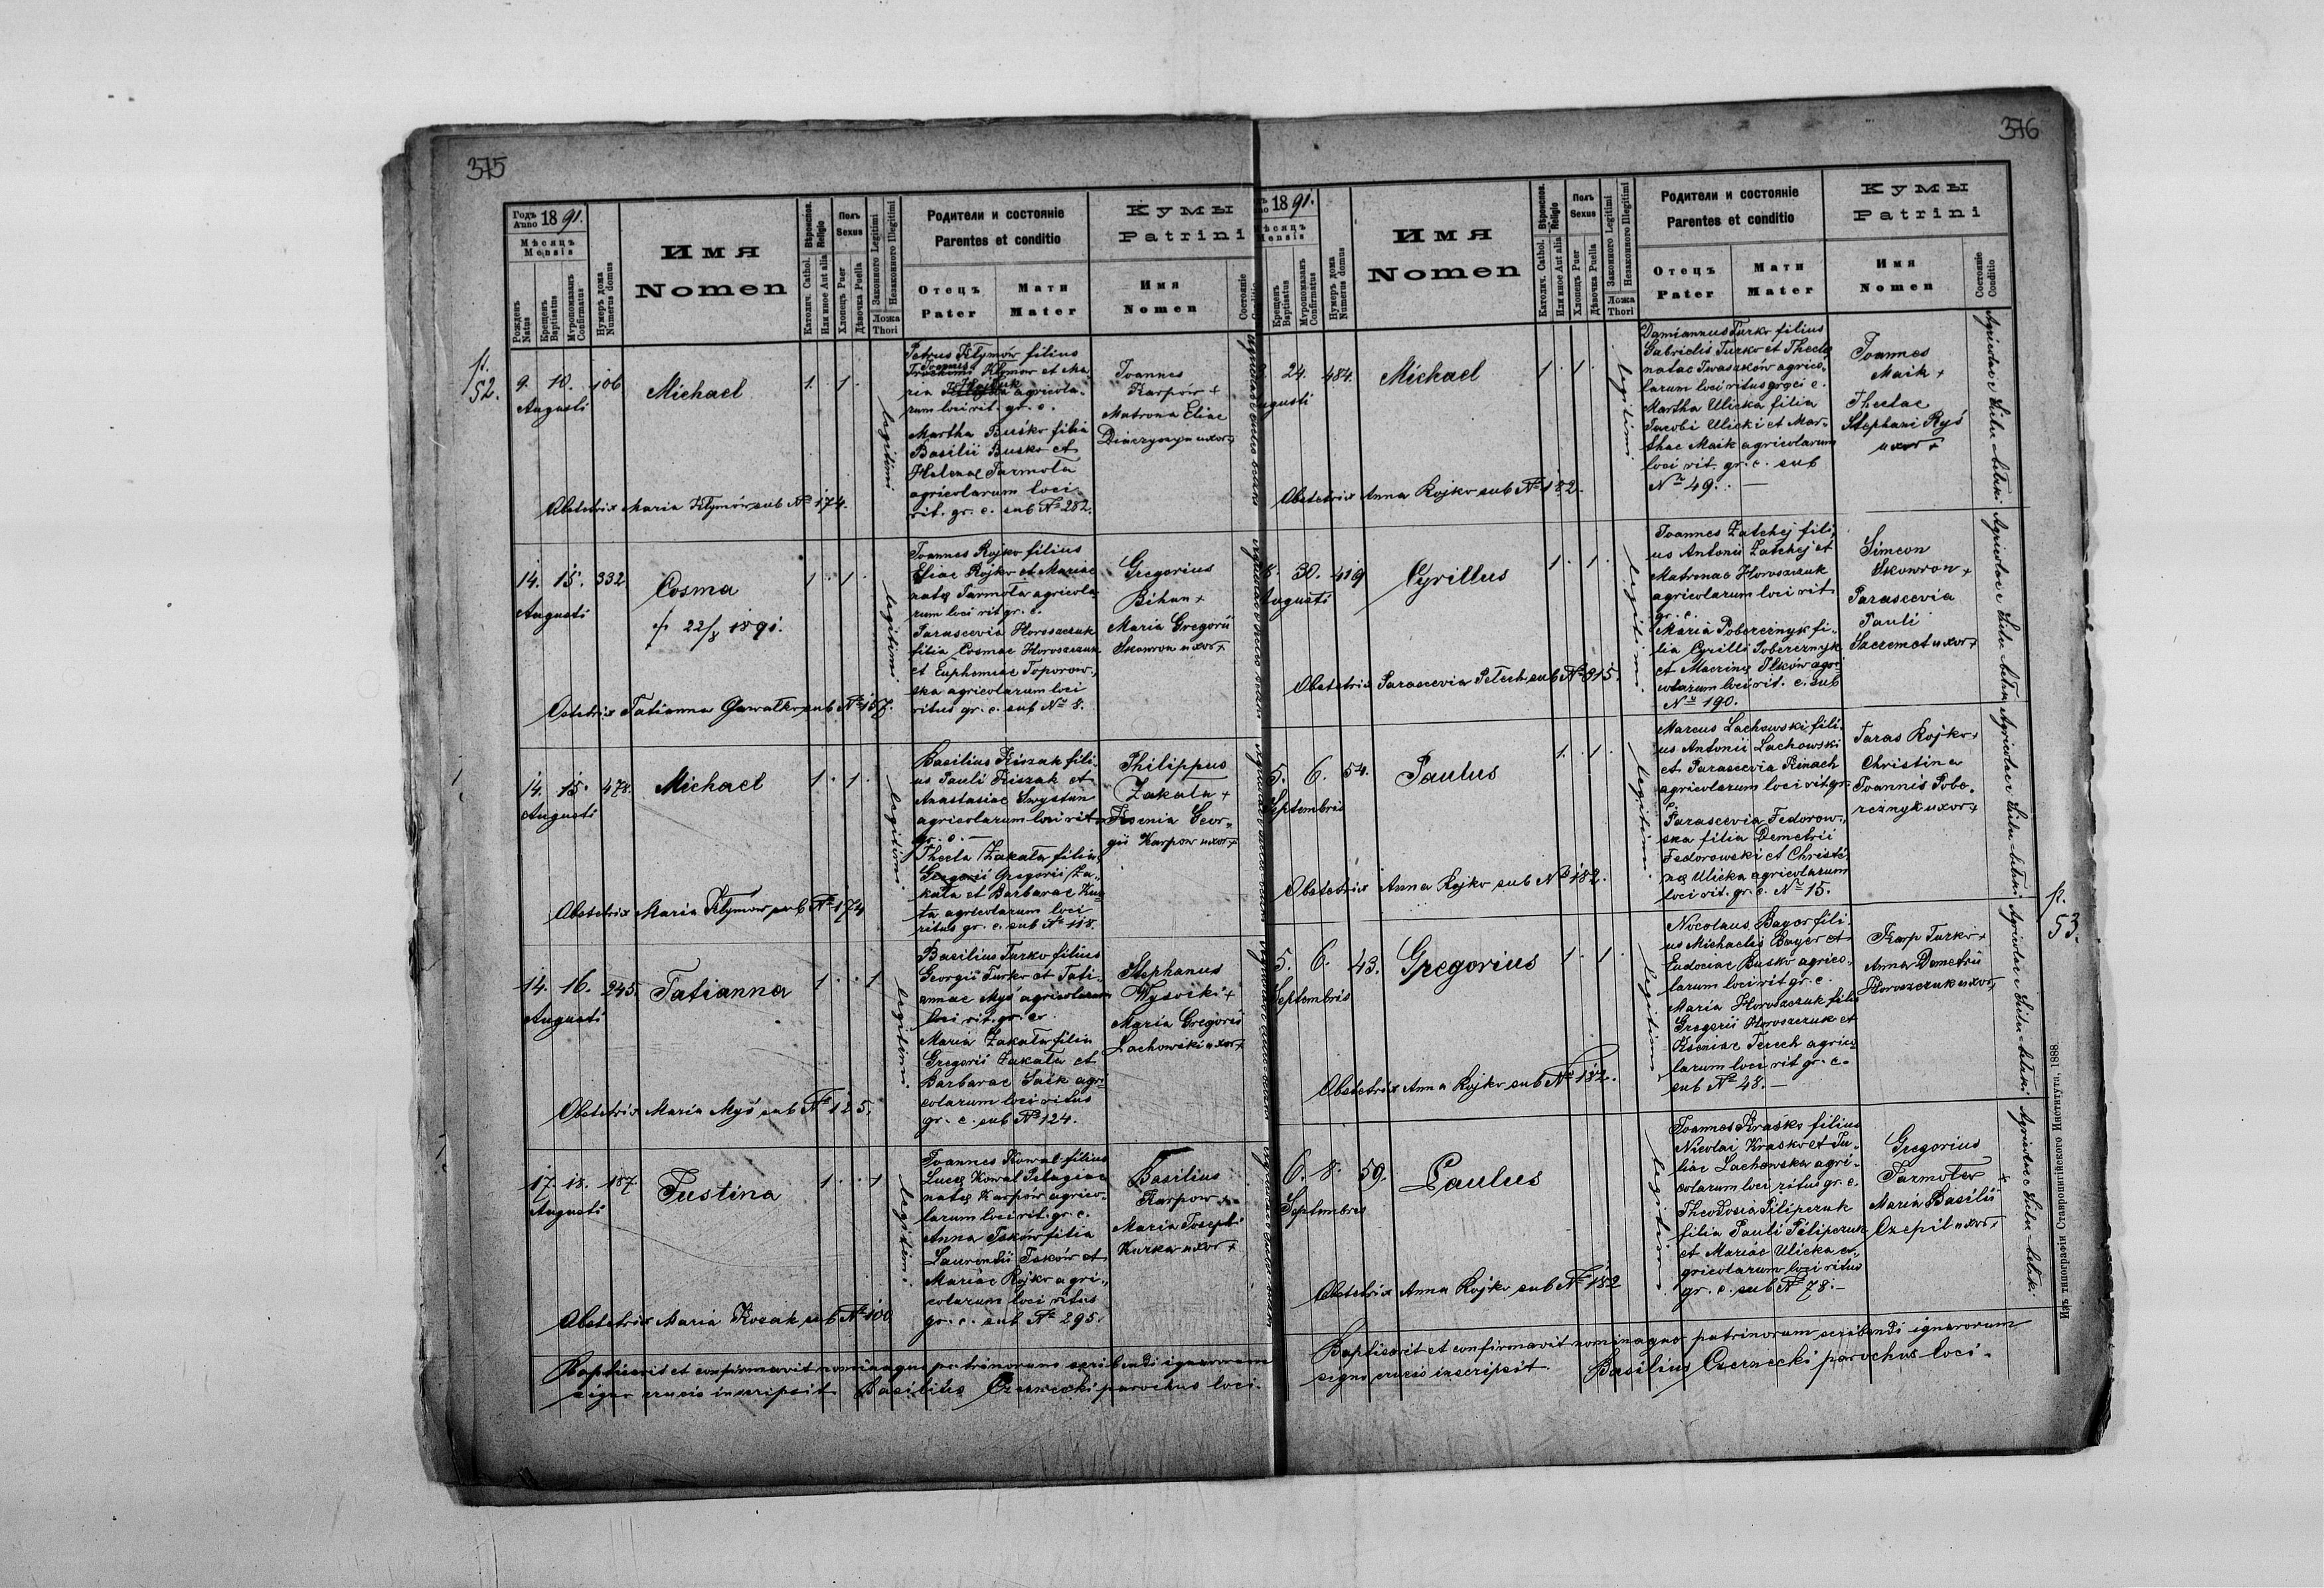 375
Годъ Anno 1891.
Мѣсяцъ Mensis
Рожденъ Natus
Крещенъ Baptisatus
Мѵропомазанъ Confirmatus
Нумеръ дома Numerus domus
Имя
Nomen
Вѣроиспов. Religio
Католич. Cathol.
Или иное Aut alia
Полъ Sexus
Хлопецъ Puer
Дѣвочка Puella
Законного Legitimi
Незаконного Illegitimi
Ложа Thori
Родители и состояніе
Parentes et conditio
Отецъ Pater
Мати Mater
Кумы
Patrini
Имя Nomen
Состояніе
p. 52.
9. 10. 106 Michael 1. 1.
Augusti
legitimi
Petrus Klymów filius
Joannis
Klymow et Ma
ria Hajduk agricola-
rum loci rit. gr. c.
Martha Buśko filia
Basilii Busko et
Helenae Jarmoła
agricolarum loci
rit. gr. c. sub № 282.
Joannes
Karpów +
Matrona Eliae
uxor +
Obstetrix Maria Klymów sub № 174.
14. 15. 332 Cosma 1. 1.
Augusti
22/8 1891.
legitimi
Joannes Rojko filius
Eliae Rojko et Mariae
natę Jarmoła agricola
rum loci rit gr. c.
Parascevia Horoszczuk
filia Cosmae Horoszczuk
et Euphemiae Toporow-
ska agricolarum loci
ritus gr. c. sub № 8.
Gregorius
Bihun +
Maria Gregorii
Skowron uxor +
Ostetrix Tatianna Gawałko sub № 157.
14. 15. 478. Michael 1. 1.
Augusti
legitimi
Basilius Kiszak fili-
us Pauli Kiszak et
Anastasiae Swystun
agricolarum loci rit
gr. c. —
Thecla Zakała filia
Gregorii Gregorii Za-
kała et Barbarae
agricolarum loci
ritus gr. c. sub № 118.
Philippus
Zakała +
Ksenia Geor-
gii Karpow uxor +
Obstetrix Maria Klymow sub № 174
14. 16. 245. Tatianna 1. 1
Augusti
legitimi
Basilius Turko filius
Georgii Turko et Tati-
annae Myś agricolarum
loci rit. gr. c.
Maria Zakała filia
Gregorii Zakała et
Barbarae Saik agri
colarum loci ritus
gr. c. sub № 124.
Stephanus
Wysocki +
Maria Gregorii
Lachowski uxor +
Obstetrix Maria Myś sub № 125.
17. 18. 187. Justina 1. 1
Augusti
legitimi
Joannes Kowal filius
Lucę Kowal Pelagiae
natę Karpów agrico-
larum loci rit. gr. c.
Anna Jsków filia
Laurentii Jsków et
Mariae Rojko agri-
colarum loci ritus
gr. c. sub № 295.
Basilius
Karpow +
Maria Josephi
Kurka uxor +
Obstetrix Maria Kozak sub № 100
Baptisavit et confirmavit nominaque patrinorum scribendi ignarorum
signo crucis inscripsit Basilius Czernecki parochus loci.
376
1891.
Мѣсяцъ Mensis
Крещенъ Baptisatus
Мѵропомазанъ Confirmatus
Нумеръ дома Numerus domus
Имя
Nomen
Вѣроиспов. Religio
Католич. Cathol.
Или иное Aut alia
Полъ Sexus
Хлопецъ Puer
Дѣвочка Puella
Законного Legitimi
Незаконного Illegitimi
Ложа Thori
Родители и состояніе
Parentes et conditio
Отецъ Pater
Мати Mater
Кумы
Patrini
Имя Nomen
Состояніе Conditio
24. 484. Michael 1. 1.
Augusti
legitimi
Damiannus Turko filius
Gabrielis Turko et Theclę
natae Jwaszków agrico-
larum loci ritus gręci c.
Martha Ulicka filia
Jacobi Ulicki et Mar-
thae Maik agricolarum
loci rit. gr. c. sub
№ 49. —
Joannes
Maik +
Theclae
Stephani Ryś
uxor +
Obstetrix Anna Rojko sub № 182.
30. 419 Cyrillus 1. 1.
Augusti
legitimi
Joannes Zatchej fili-
us Antonii Zatchej et
Matronae Horoszczuk
agricolarum loci rit
gr. c.
Maria Pobereżnyk fi-
lia Cyrilli Pobereżnyk
et Macrinę Jlków agri
colarum loci rit. c. sub
№ 190.
Simeon
Skowron +
Parascevia
Pauli
Szeremet uxor +
Obstetrix Parascevia Petech sub № 315.
5. 6. 54. Paulus 1. 1.
Septembris
legitimi
Marcus Lachowski fili-
us Antonii Lachowski
et Parascevia Kinach
agricolarum loci rit gr
c.
Parascevia Fedorow-
ska filia Demetrii
Fedorowski et Christi-
nę Ulicka agricolarum
loci rit. gr. c. № 15.
Taras Rojko +
Christina
Joannis Pobe-
reżnyk uxor +
Obstetrix Anna Rojko sub № 182.
p. 53.
5. 6. 43. Gregorius 1. 1.
Septembris
legitimi
Nocolaus Bayer fili-
us Michaelis Bayer et
Eudociae Buśko agrico-
larum loci rit gr. c.
Maria Horoszczuk filia
Gregorii Horoszczuk et
Kseniae Terech agrico
larum loci rit gr. c.
sub № 48. —
Karp Turko +
Anna Demetrii
Horoszczuk uxor +
Obstetrix Anna Rojko sub № 182.
6. 8. 59. Paulus
Septembris
legitimi
Joannes Kraśko filius
Nicolai Kraśko et Ju-
liae Lachowska agri-
colarum loci ritus gr. c.
Theodosia Pilipczuk
filia Pauli Pilipczuk
et Mariae Ulicka a-
gricolarum loci ritus
gr. c. sub № 78. —
Gregorius
Jarmoła +
Maria Basilii
Czepil uxor +
Obstetrix Anna Rojko sub № 182
Baptisavit et confirmavit nominaque patrinorum scribendi ignarorum
signo crucis inscripsit Basilius Czernecki parochus loci.
Изъ типографіи Ставропигійского Института, 1888.